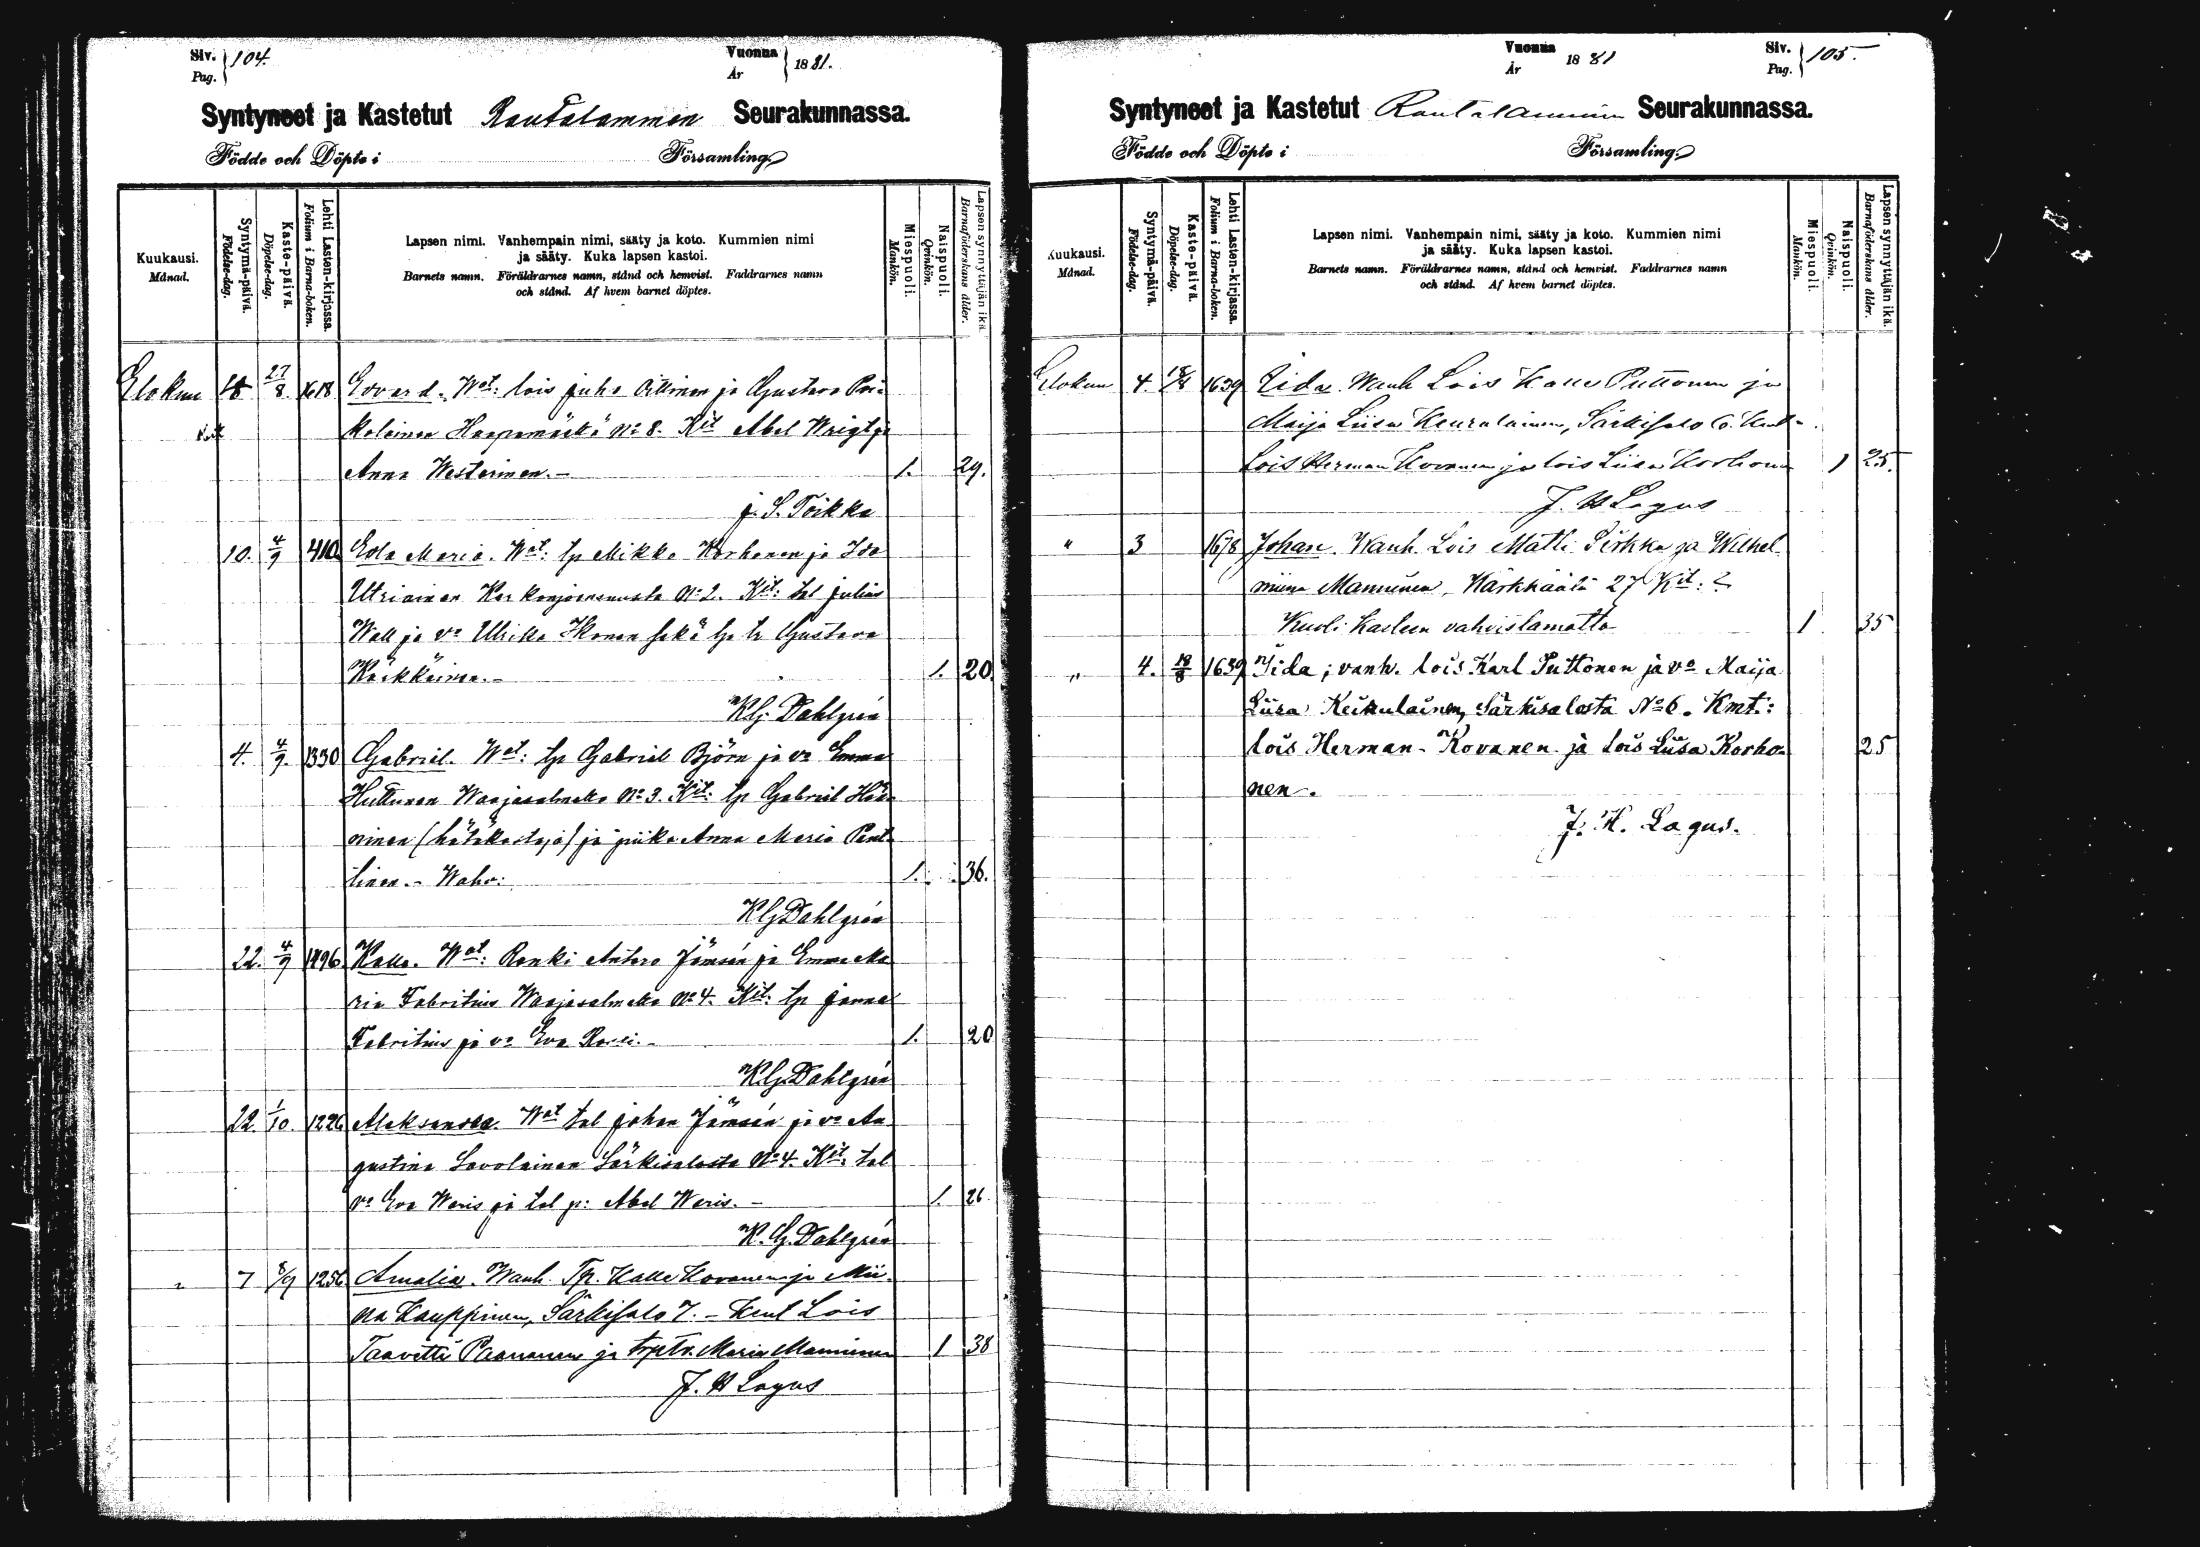 Siv. 104.
Pag.
Vuonna 1881.
År
Syntyneet ja Kastetut Rautalammen Seurakunnassa.
Födde och Döpte i Församling
Kuukausi.
Månad.
Syntymä-päivä.
Födelse-dag.
Kaste-päivä.
Döpelse-dag.
Lehti Lasten-kirjassa.
Folium i Barna-boken.
Lapsen nimi. Vanhempain nimi, sääty ja koto. Kummien nimi
ja sääty. Kuka lapsen kastoi.
Barnets namn. Föräldrarnes namn, stånd och hemvist. Faddrarnes namn
och stånd. Af hvem barnet döptes.
Miespuoli.
Mankön.
Naispuoli.
Qvinkön.
Lapsen synnyttäjän ikä.
Barnaföderskans ålder.
Elokuu 18 27/8. 1618 Evverd. Wat: lois Juho Oikinen ja Gustava
No 8. Kit Abel
Anna Westerinen.- 1. 29.
J. S. Toikka
10. 4/9 410. Eda Maria. Wat: tp Mikko Korhonen ja Ida
Utriainen No 2. Kit: tal Julius
Wall ja vo Ulrika Ikonen sekä tp tr Gustava
Käikkäinen.- 1. 20.
KG. Dahlgrén
4. 4/9. 1330 Gabriel. Wat: tp Gabriel Björn ja vo Emma
Huttunen Waajasalmelta No 3. Kit: tp Gabriel Hän-
ninen (hätäkastaja) ja piika Anna Maria Pent-
tinen.- Wahv: 1. 36.
KG Dahlgrén
22. 4/9 1496 Kalle. Wat: Renki Antero Jämsén ja Emma Ma
ria Fabritius Waajasalmelta No 4. Kit: tp Janne
Fabritius ja vo Eva 1. 20
K.G. Dahlgrén
22. 1/10. 1226 Aleksandra. Wat tal Johan Jämsén ja vo Au
gustina Savolainen Särkisalosta No 4. Kit: tal
vo Eva Weris ja tal p: Abel Weris.- 1. 26
K. G. Dahlgrén
„ 7 8/9 1256 Amalia. Wanh. Tp. Kalle Kovanen ja Mii-
na Kauppinen, Särkisalo 7. - Kmt Lois
Taavetti Paananen ja Maria Manninen 1 38
J. H Lagus
Vuonna 1881
År
Siv. 105.
Pag.
Syntyneet ja Kastetut Rautalammin Seurakunnassa.
Födde och Döpte i Församling.
Kuukausi.
Månad.
Syntymä-päivä.
Födelse-dag.
Kaste-päivä.
Döpelse-dag.
Lehti Lasten-kirjassa.
Folium i Barna-boken.
Lapsen nimi. Vanhempain nimi, sääty ja koto. Kummien nimi
ja sääty. Kuka lapsen kastoi.
Barnets namn. Föräldrarnes namn, stånd och hemvist. Faddrarnes namn
och stånd. Af hvem barnet döptes.
Miespuoli.
Mankön.
Naispuoli.
Qvinkön.
Lapsen synnyttäjän ikä.
Barnaföderskans ålder.
Elokuu 4. 18/8 1639 Iida. Wanh Lois Kalle Puttonen ja
Maija Liisa Keurulainen, Särkisalo 6. Kmt-
Lois Herman Kovanen ja lois Liisa Korhonen 1 25.
J. H Lagus
„ 3 1678 Johan. Wanh. Lois Matti Pirkka ja Wilhel-
miina Manninen, Kärkkäälä 27 Kit: ?
Kuoli kasteen vahvistamatta 1 35
„ 4. 18/8 1639 Iida; vanh. lois Karl Puttonen ja vo Maija
Liisa Keurulainen, Särkisalosta No 6. Kmt.:
lois Herman Kovanen ja lois Liisa Korho- 25
nen.
J. H. Lagus.